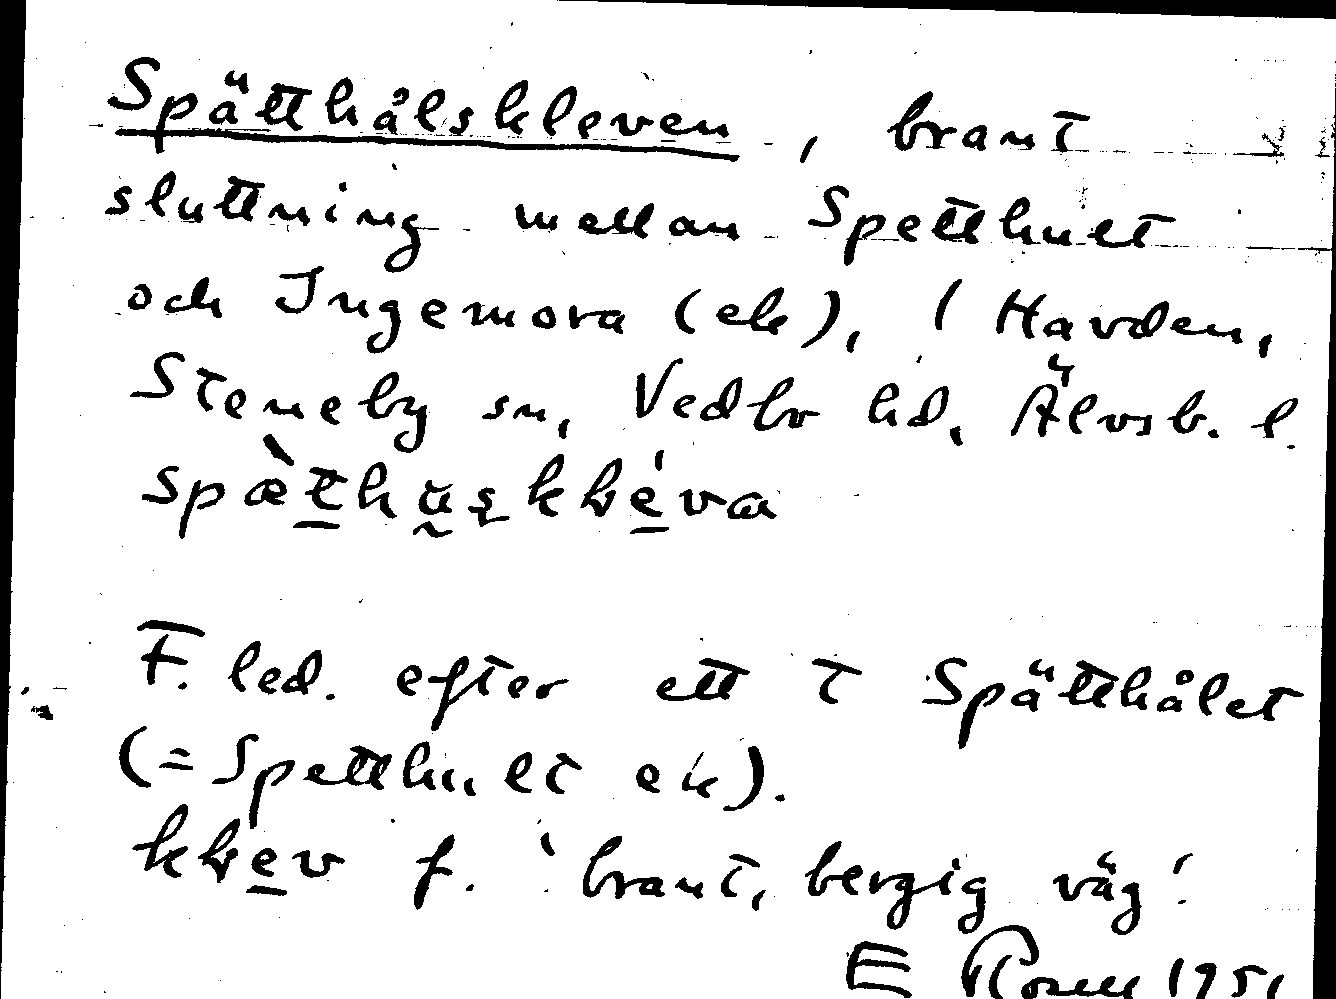 Spätthålskleven, brant
sluttning mellan Spetthult
och Ingemora (ek), i Havden,
Steneby sn, Vedbo hd, Älvsb. l.
F. led. efter ett t Spätthålet
(= Spetthult ek).
f. 'brant, bergig väg'.
E Rosell 1951